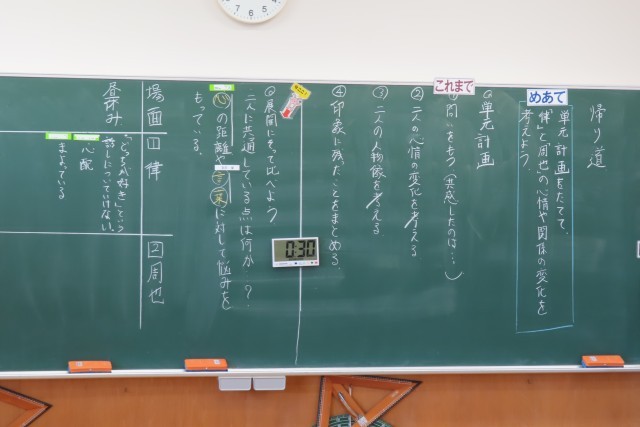 帰り道
めあて
単元計画をたてて、
「律」と周也の心情や関係の変化を
考えよう。
これまで
◎単元計画
①問いをもつ(共感したのは…。)
②二人の心情の変化を考える
③二人の人物像を考える
④印象に残ったことをまとめる
0:30
◎展開にそって比べよう
二人に共通している点は何か…?
心の距離や言葉に対して悩みを
もっている。
場面
①律
②周也
昼休み
「どっちが好き」という
話しについていけない。
心配
まよっている